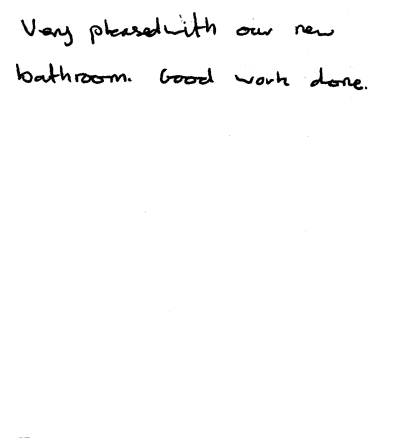 Very pleased with our new
bathroom. Good work done.